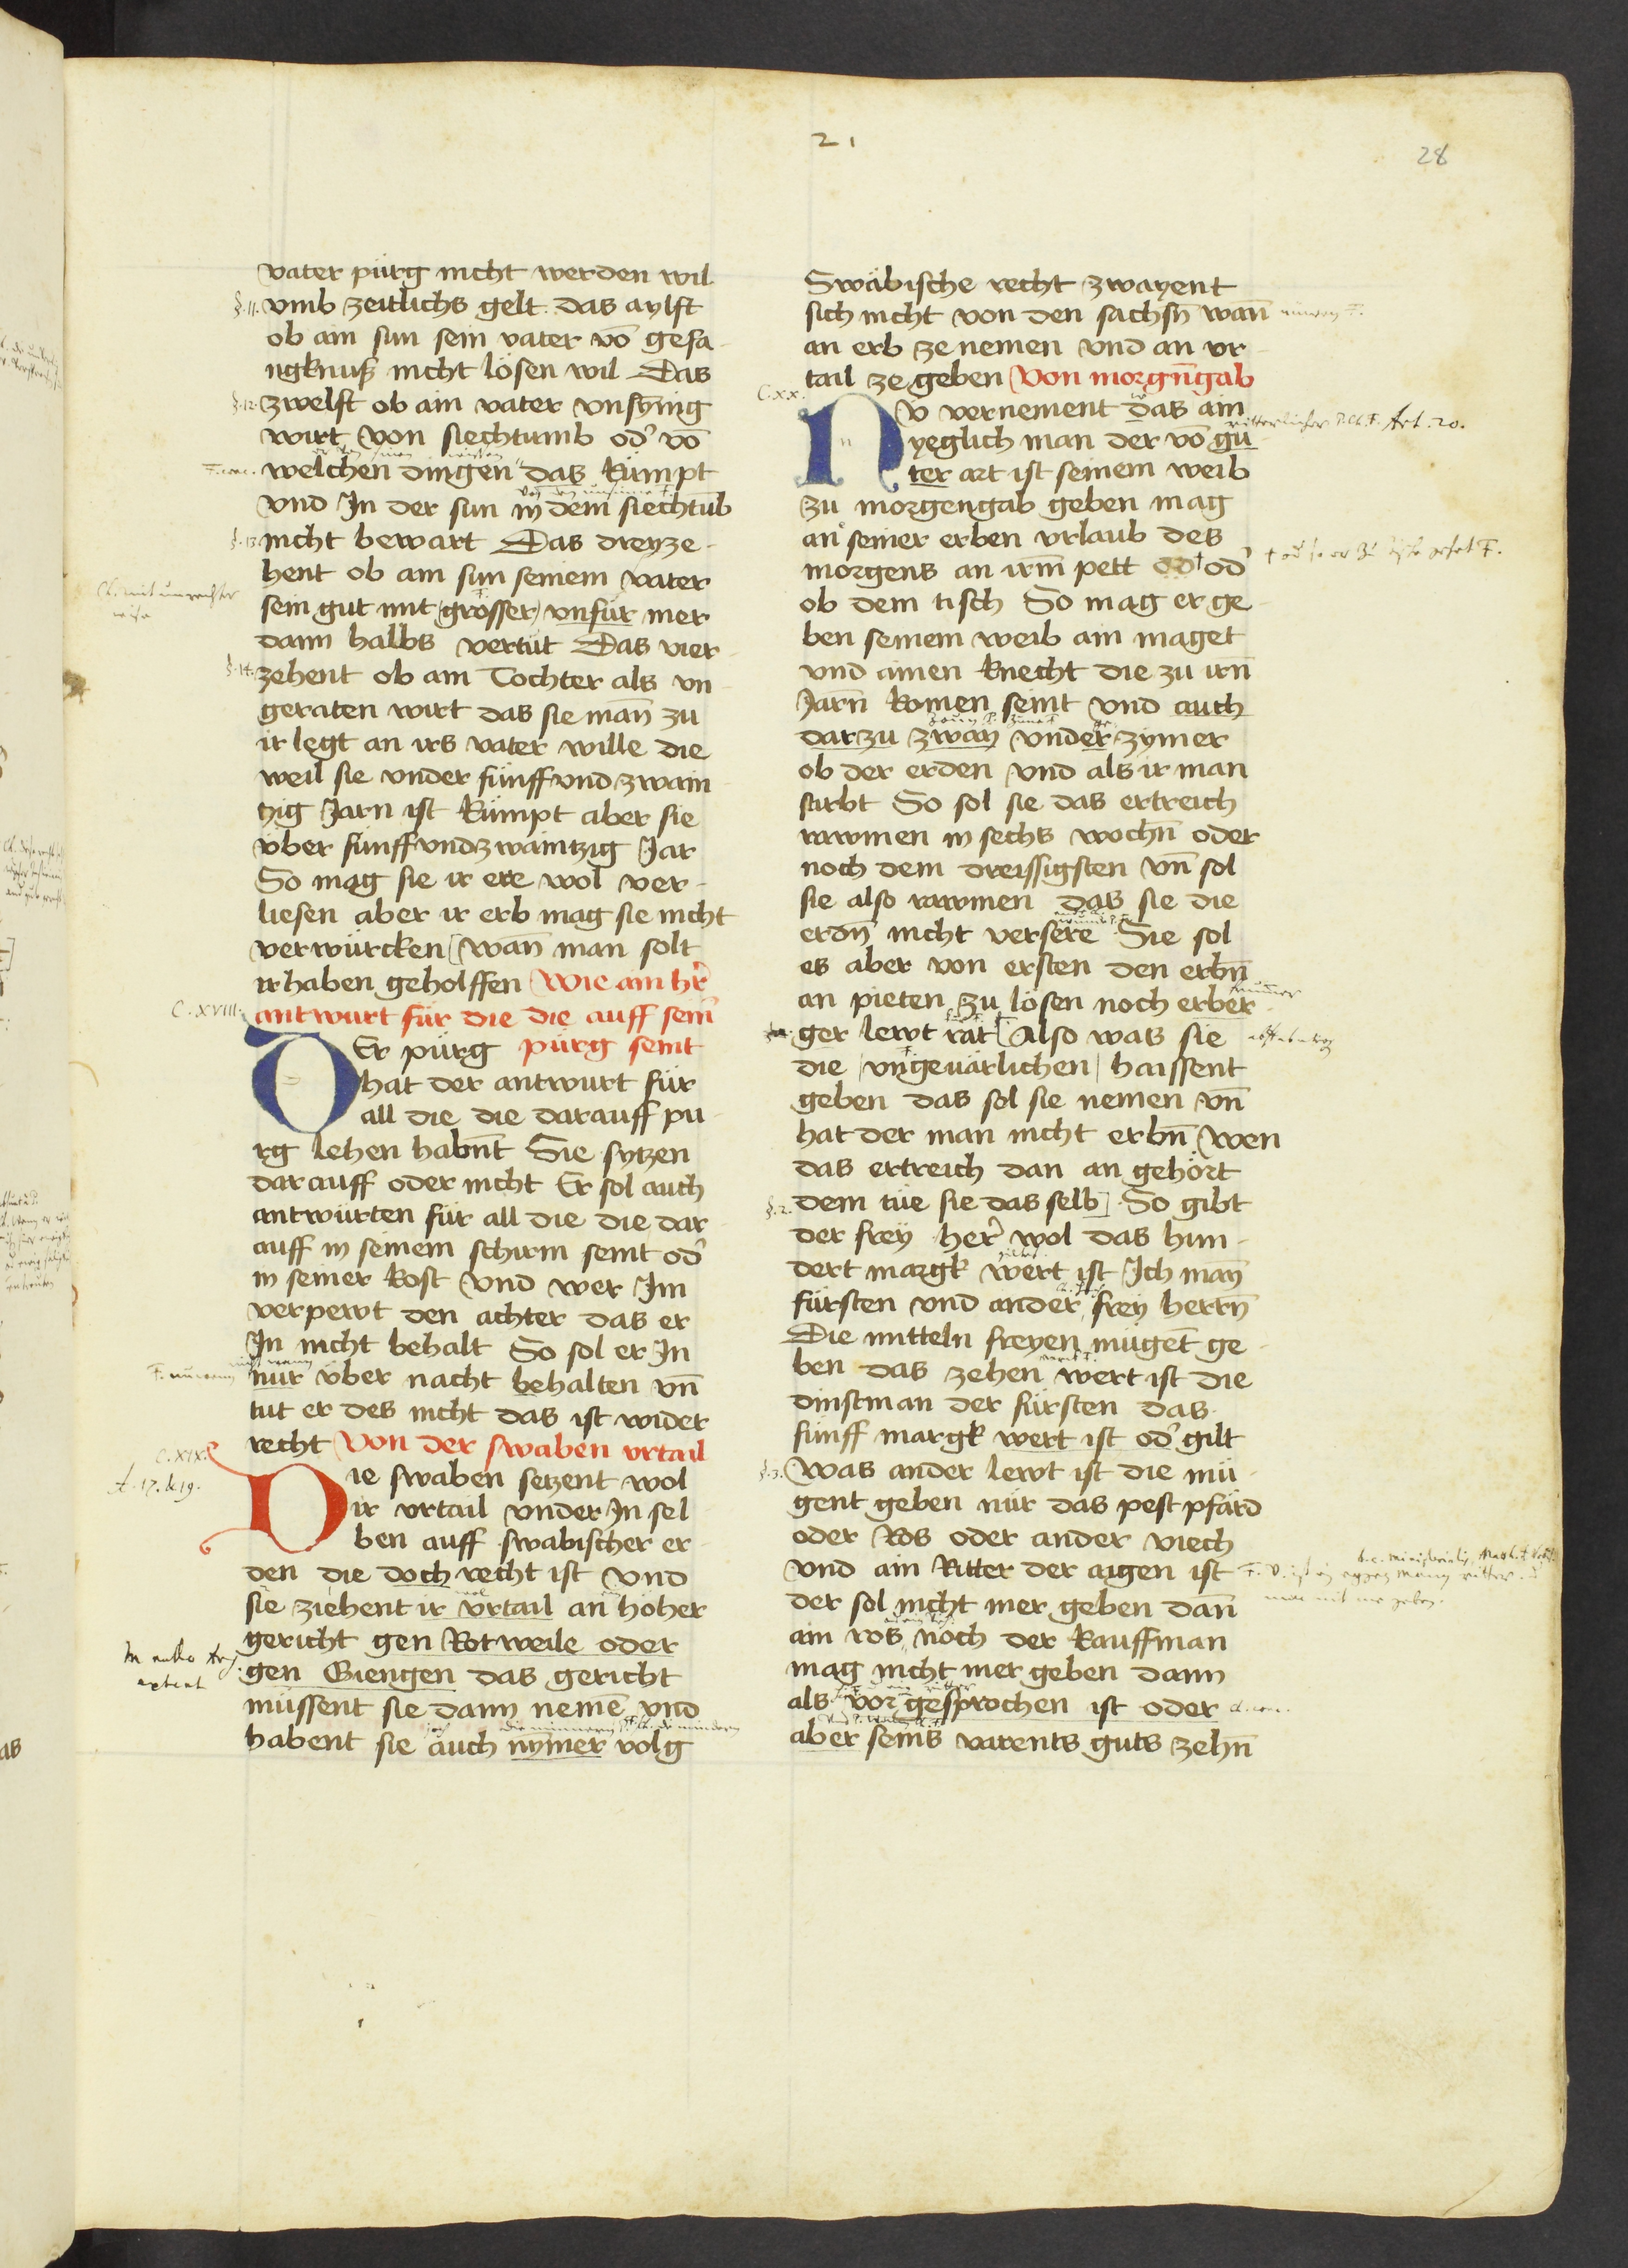 21
28
vater pürg nicht werden wil
§. 11. vmb zeitlichs gelt das aylft
ob ain sun sein vater vō gefa
ngknuß nicht lösen wil Das
§. 12. zwelft ob ain vater vnsynig
wirt von siechtumb od' vō
welchen dingen das kümpt
vnd In der sun in dem siechtūb
§. 13. nicht bewart Das dreyze
hent ob ain sun seinem vater
sein gut mit grosser vnfür mer
dann halbs vertüt Das vier
§. 14. zehent ob ain Tochter als vn
geraten wirt das sie man̄ zu
ir legt an irs vater wille die
weil sie vnder fünff vnd zwain
tzig Jarn ist kümpt aber sie
vber fünff vnd zwaintzig Jar
So mag sie ir ere wol ver
liesen aber ir erb mag sie nicht
verwürcken wan̄ man solt
ir haben geholffen Wie ain hr̄
C. XVIII. antwurt für die die auff sein'
Er pürg pürg seint
hat der antwurt für
all die die darauff pu
rg lehen habn̄t Sie sytzen
darauff oder nicht Er sol auch
antwürten für all die die dar
auff in seinem schirm seint od'
in seiner kost vnd wer Im
verpewt den achter das er
In nicht behalt So sol er In
nür vber nacht behalten vn̄
tut er des nicht das ist wider
recht Von der swaben vrtail
C. XIX.
A. 17. & 19.
Die swaben setzent wol
ir vrtail vnder In sel
ben auff swabischer er
den die doch recht ist vnd
sie ziehent ir vrtail an hoher
gericht gen Rotweile oder
gen Giengen das gericht
müssent sie dann nemē vnd
habent sie auch nymer volg
Swäbische recht zwayent
sich nicht von den sachsn̄ wan̄
an erb ze nemen vnd an vr
tail ze geben Von morgn̄gab
C. XX.
Nv vernement das ain
yeglich man der vō gu
Art. 20.
ter art ist seinem weib
zu morgengab geben mag
an seiner erben vrlaub des
morgens an irm̄ pett od' od'
ob dem tisch So mag er ge
ben seinem weib ain maget
vnd ainen knecht die zu irn̄
Jarn̄ komen seint vnd auch
darzu zwayn vnder zymer
ob der erden vnd als ir man
stirbt So sol sie das ertreich
rawmen in sechs wochn̄ oder
noch dem dreissigsten vn̄ sol
sie also rawmen das sie die
erdn̄ nicht versere Sie sol
es aber von ersten den erbn̄
an pieten zu lösen noch erber
ger lewt rat Also was sie
die vngeuärlichen haissent
geben das sol sie nemen vn̄
hat der man nicht erbn̄ wen
das ertreich dan an gehört
§. 2. dem tüe sie das selb So gibt
der frey her' wol das hun
dert margk wert ist Ich man̄
fürsten vnd ander frey herrn̄
Die mitteln freyen mugēt ge
ben das zehen wert ist die
dinstman der fürsten das
fünff margk wert ist od' gilt
§. 3. Was ander lewt ist die mü
gent geben nür das pest pfärd
oder Ros oder ander viech
vnd ain Ritter der aigen ist
der sol nicht mer geben dan̄
ain ros noch der kauffman
mag nicht mer geben dann
als vor gesprochen ist oder
aber seins varents guts zehn̄